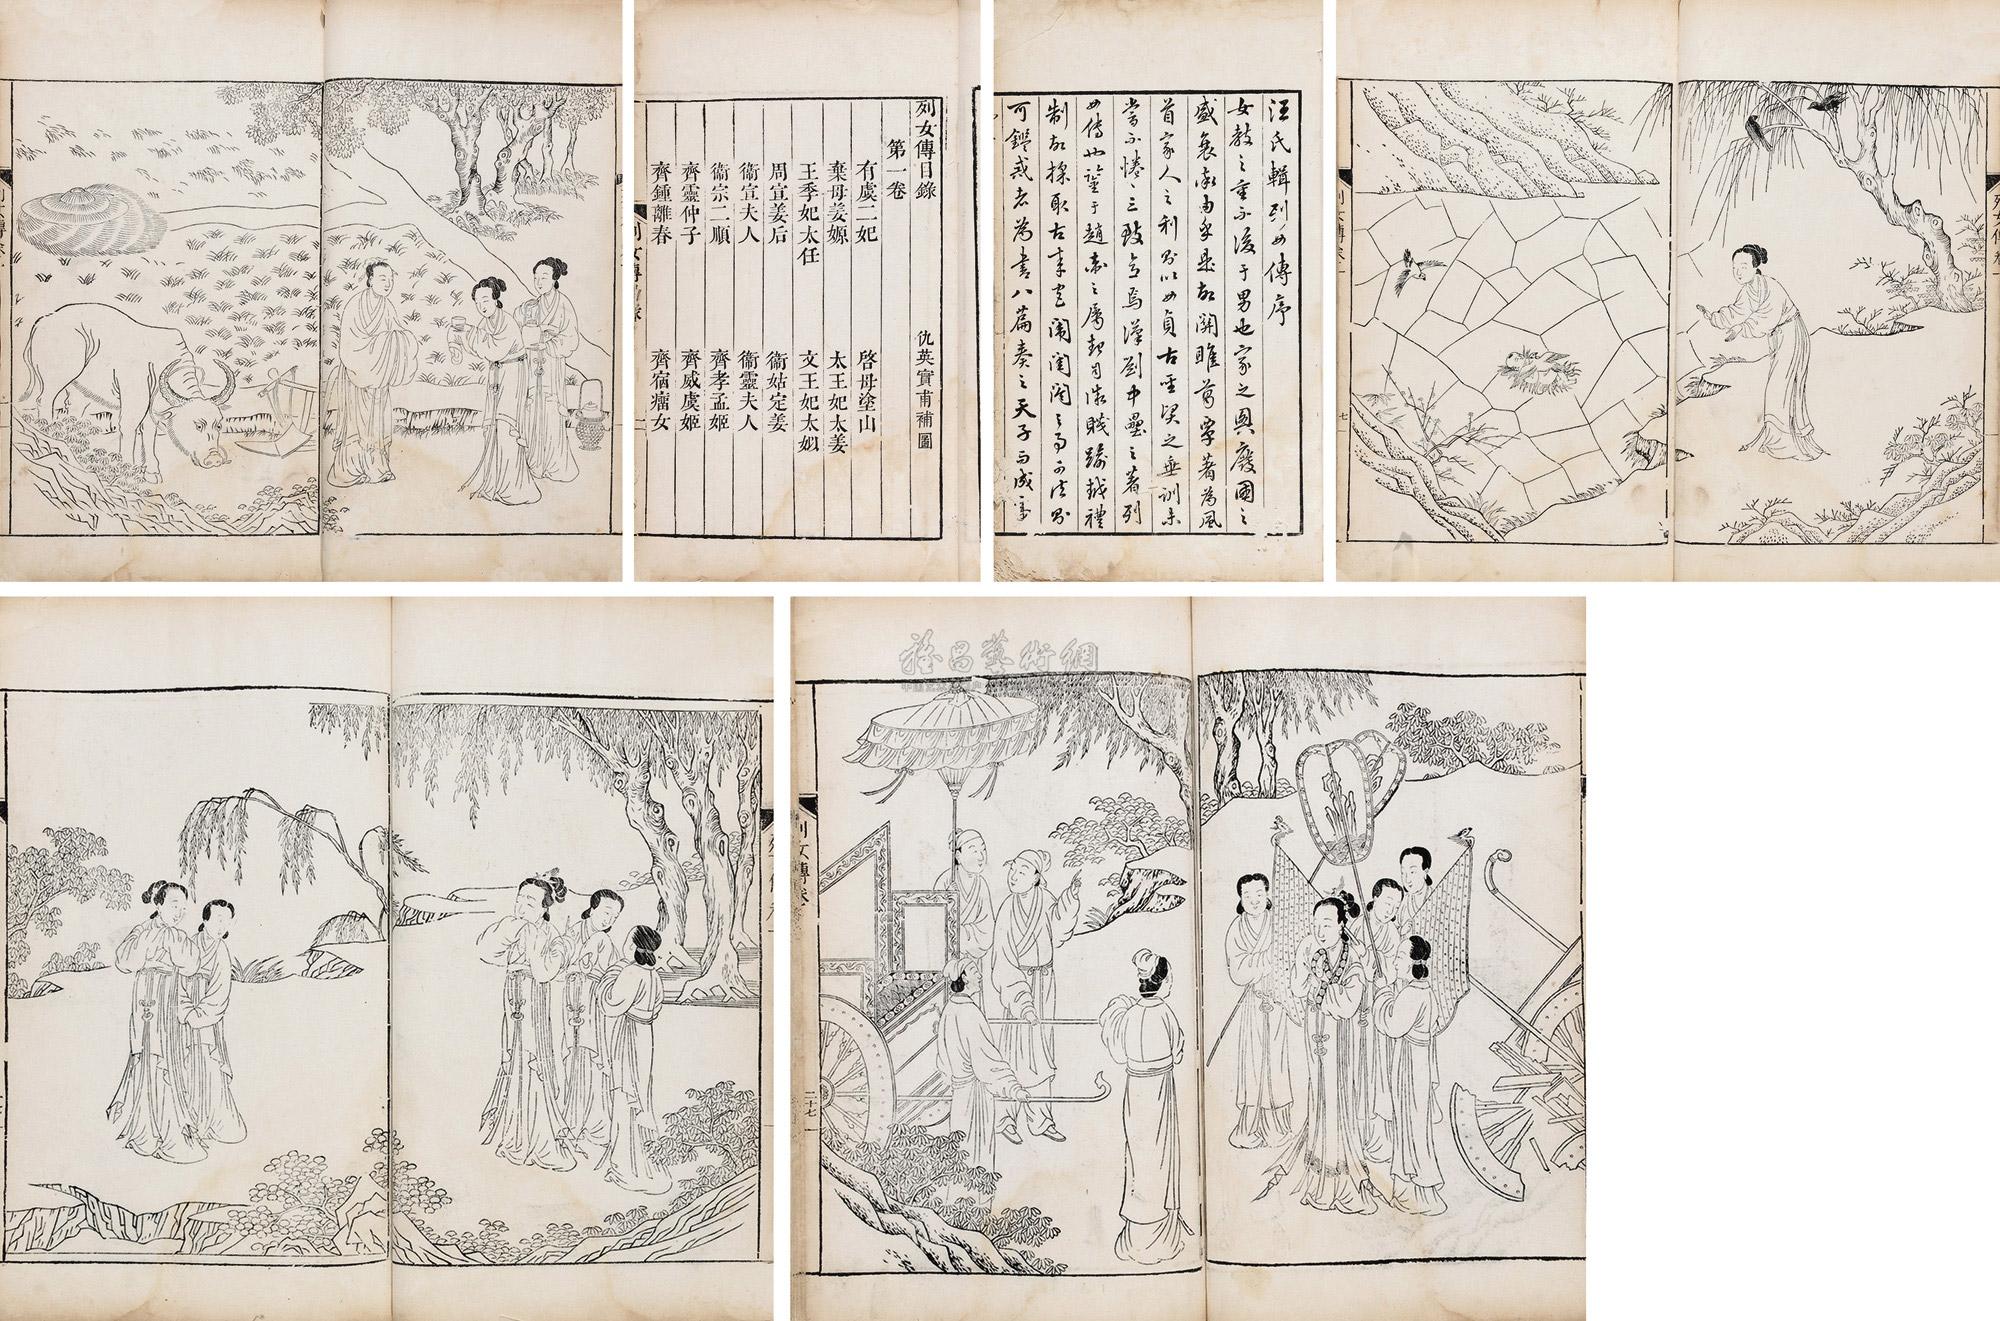 列女傳目錄
第一卷
仇英實甫補圖
有虞二妃 啓母塗山
棄母姜嫄 太王妃太姜
王季妃太任 文王妃太姒
周宣姜后 衞姑定姜
衞宣夫人 衞靈夫人
衞宗二順 齊孝孟姬
齊靈仲子 齊威虞姬
齊鍾離春 齊宿瘤女
汪氏輯列女傳序
女教之重不後于男也家之興廢國之
盛衰率由乎是故關雎葛覃著為風
首家人之利貞古聖哲之垂訓未
嘗不惓惓三致意焉漢劉中壘之著列
女傳也鑒于趙
制故採取古
可鑑戒者為書八篇奏之天子
列女傳卷
七
列女傳卷一
列女傳卷
二十七